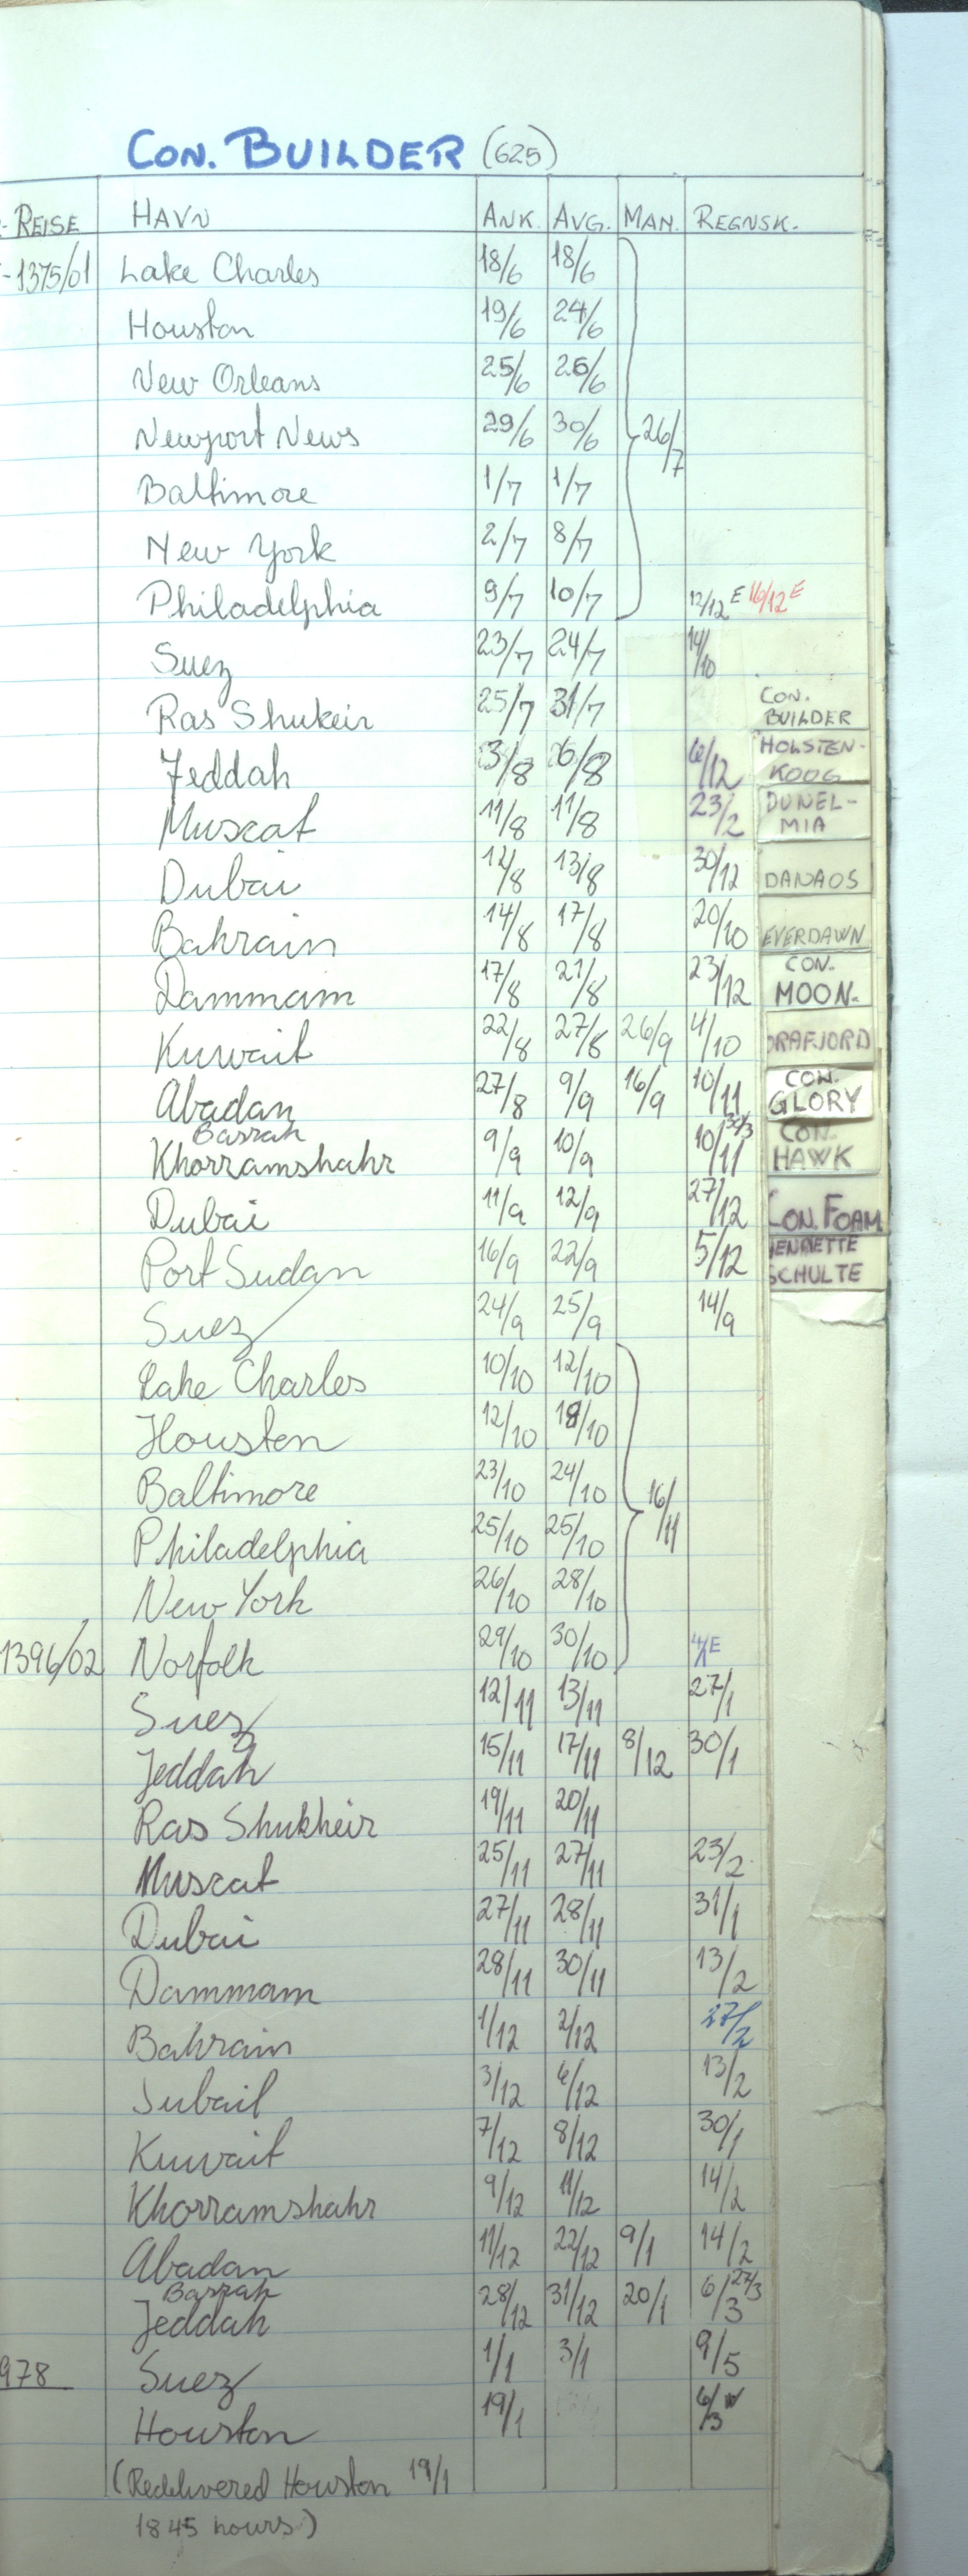 CON. BUILDER (625)
REISE HAVN ANK. AVG. MAN. REGNSK.
-1375/01 Lake Charles 18/6 18/6
Houston 19/6 24/6
New Orleans 25/6 26/6
Newport News 29/6 30/6 26/7
Baltimore 1/7 1/7
New York 2/7 8/7
Philadelphia 9/7 10/7 12/12 E 16/12 E
Suez 23/7 24/7 14/10
Ras Shukeir 25/7 31/7 CON. BUILDER
Jeddah 3/8 6/8 6/12 HOLSTEN-KOOG
Muscat 11/8 11/8 23/2 DUNEL-MIA
Dubai 12/8 13/8 30/12 DANAOS
Bahrain 14/8 17/8 20/10 EVERDAWN
Dammam 17/8 21/8 23/12 CON. MOON.
Kuwait 22/8 27/8 26/9 4/10 DRAFJORD
Abadan 27/8 9/9 16/9 10/11 CON. GLORY
Basrah
Khorramshahr 9/9 10/9 10/11 CON. HAWK
Dubai 11/9 12/9 27/12 CON. FOAM
Port Sudan 16/9 22/9 5/12 HENRIETTE SCHULTE
Suez 24/9 25/9 14/9
Lake Charles 10/10 12/10
Houston 12/10 18/10
Baltimore 23/10 24/10 16/11
Philadelphia 25/10 25/10
New York 26/10 28/10
1396/02 Norfolk 29/10 30/10 4/1 E
Suez 12/11 13/11 27/1
Jeddah 15/11 17/11 8/12 30/1
Ras Shukheir 19/11 20/11
Muscat 25/11 27/11 23/2
Dubai 27/11 28/11 31/1
Dammam 28/11 30/11 13/2
Bahrain 1/12 2/12 27/2
Jubail 3/12 6/12 13/2
Kuwait 7/12 8/12 30/1
Khorramshahr 9/12 11/12 14/2
Abadan 11/12 22/12 9/1 14/2
Basrah
Jeddah 28/12 31/12 20/1 6/3 27/3
978 Suez 1/1 3/1 9/5
Houston 19/1 6/3 W
(Redelivered Houston 19/1
1845 hours)